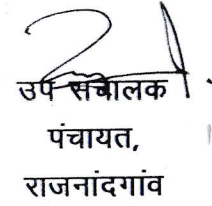 उप संचालक
पंचायत,
राजनांदगांव